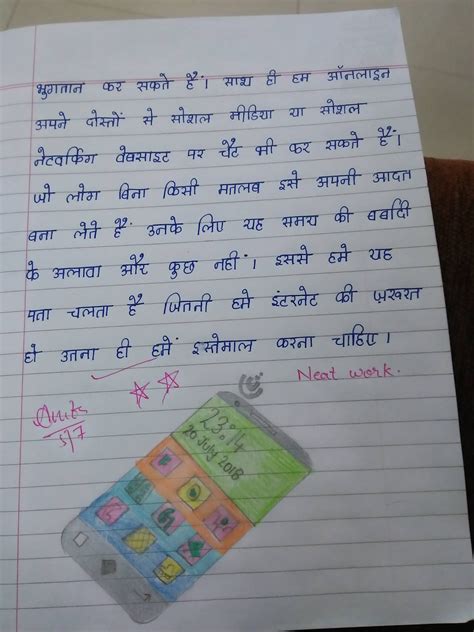 भुगतान कर सकते हैं। साथ ही हम ऑनलाइन
अपने दोस्तों से सोशल मीडिया या सोशल
नेटवर्किंग वेबसाइट पर चैट भी कर सकते हैं।
जो लोग बिना किसी मतलब इसे अपनी आदत
बना लेते हैं उनके लिए यह समय की बर्बादी
के अलावा और कुछ नहीं। इससे हमे यह
पता चलता है जितनी हमे इंटरनेट की ज़रूरत
हो उतना ही हमें इस्तेमाल करना चाहिए।
Neat work.
23:14
20 July 2018